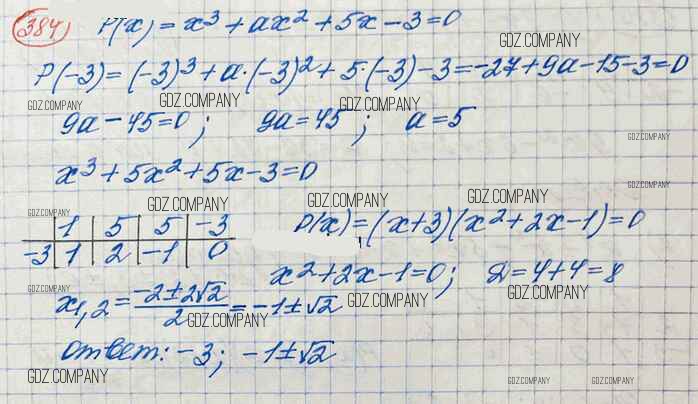 384) P(x) = x³ + ax² + 5x - 3 = 0
GDZ.COMPANY
P(-3) = (-3)³ + a·(-3)² + 5·(-3) - 3 = -27 + 9a - 15 - 3 = 0
GDZ.COMPANY GDZ.COMPANY GDZ.COMPANY
9a - 45 = 0; 9a = 45; a = 5
GDZ.COMPANY
x³ + 5x² + 5x - 3 = 0
GDZ.COMPANY
GDZ.COMPANY GDZ.COMPANY GDZ.COMPANY
1 5 5 -3
-3 1 2 -1 0
P(x) = (x+3)(x² + 2x - 1) = 0
GDZ.COMPANY
x² + 2x - 1 = 0; D = 4 + 4 = 8
GDZ.COMPANY GDZ.COMPANY GDZ.COMPANY
x1,2 = (-2 ± 2√2)/2 = -1 ± √2
GDZ.COMPANY
Ответ: -3; -1 ± √2
GDZ.COMPANY GDZ.COMPANY GDZ.COMPANY